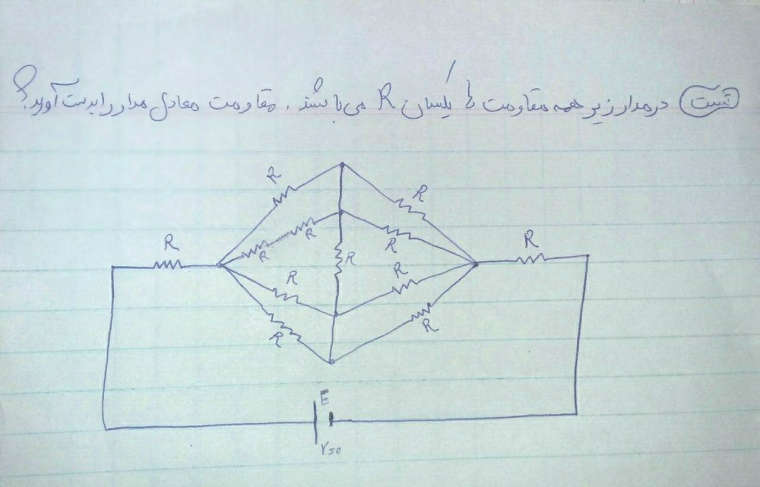 تست در مدار زیر همه مقاومت ها یکسان R می باشند. مقاومت معادل مدار را بدست آورید؟
R
R
R
R
R
R
R
R
R
R
R
R
E